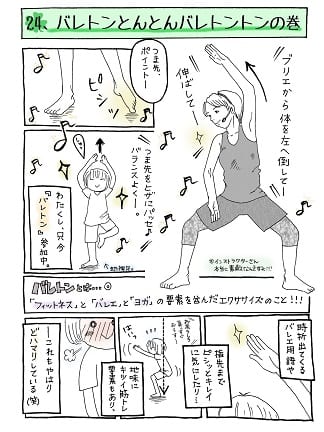 24、バレトンとんとんバレトントンの巻
プリエから体を左へ倒してー
伸ばしてー
つま先、
ポイントー
ピシッ
つま先をとじてパッセ♪
バランスよくー。
わたくし、只今
『バレトン』参加中。
※インストラクターさん
本当に素敵なんですよ
バレトンとは…
「フィットネス」と「バレエ」と「ヨガ」の要素を含んだエクササイズのこと!!!
時折出てくる
バレエ用語や
指先まで
ピシッとキレイ
に気にしたり…
地味に
キツイ筋トレ
要素もあり。
ーこれもやはり
どハマりしている(笑)